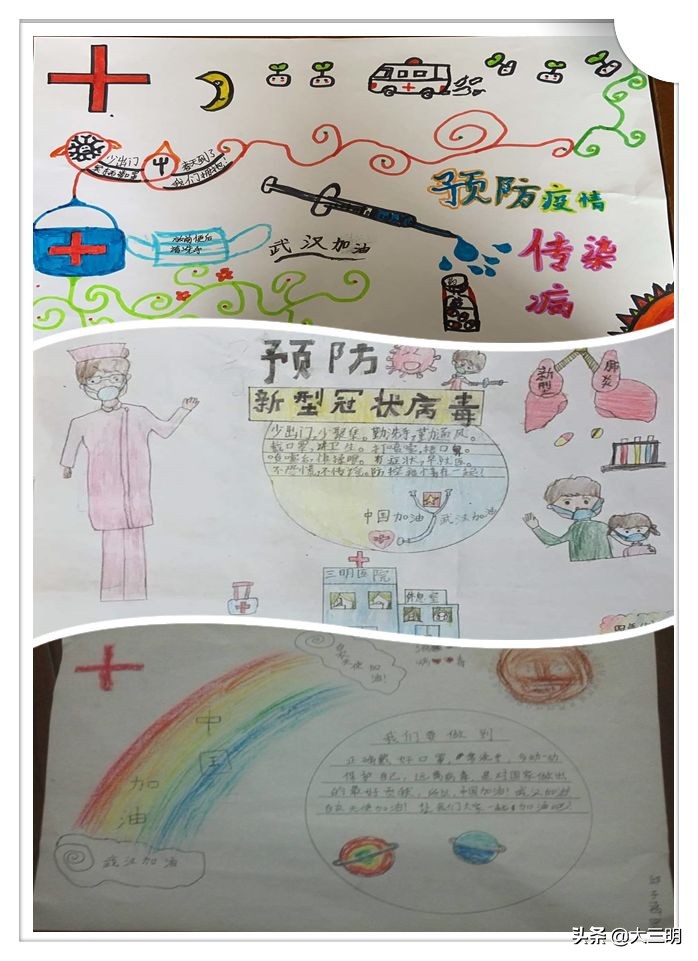 少出门
春天到了
我们拥抱!
预防疫情
传染
病
武汉加油
预防
新型冠状病毒
少出门,少聚集。勤洗手,常通风。
戴口罩,讲卫生。打喷嚏,捂口鼻。
喷嚏后,慎揉眼。有症状,早就医。
不恐慌,不传谣。防控
中国加油 武汉加油
新型
肺炎
三明医院
休息室
天使加油!
中
国
加
油
武汉加油
我们要做到
正确戴好口罩,
保护自己,远离病毒,是对国家做出
的最好贡献,所以,中国加油!武汉加油
白衣天使加油!让我们大家一起加油吧!
头条 @大三明